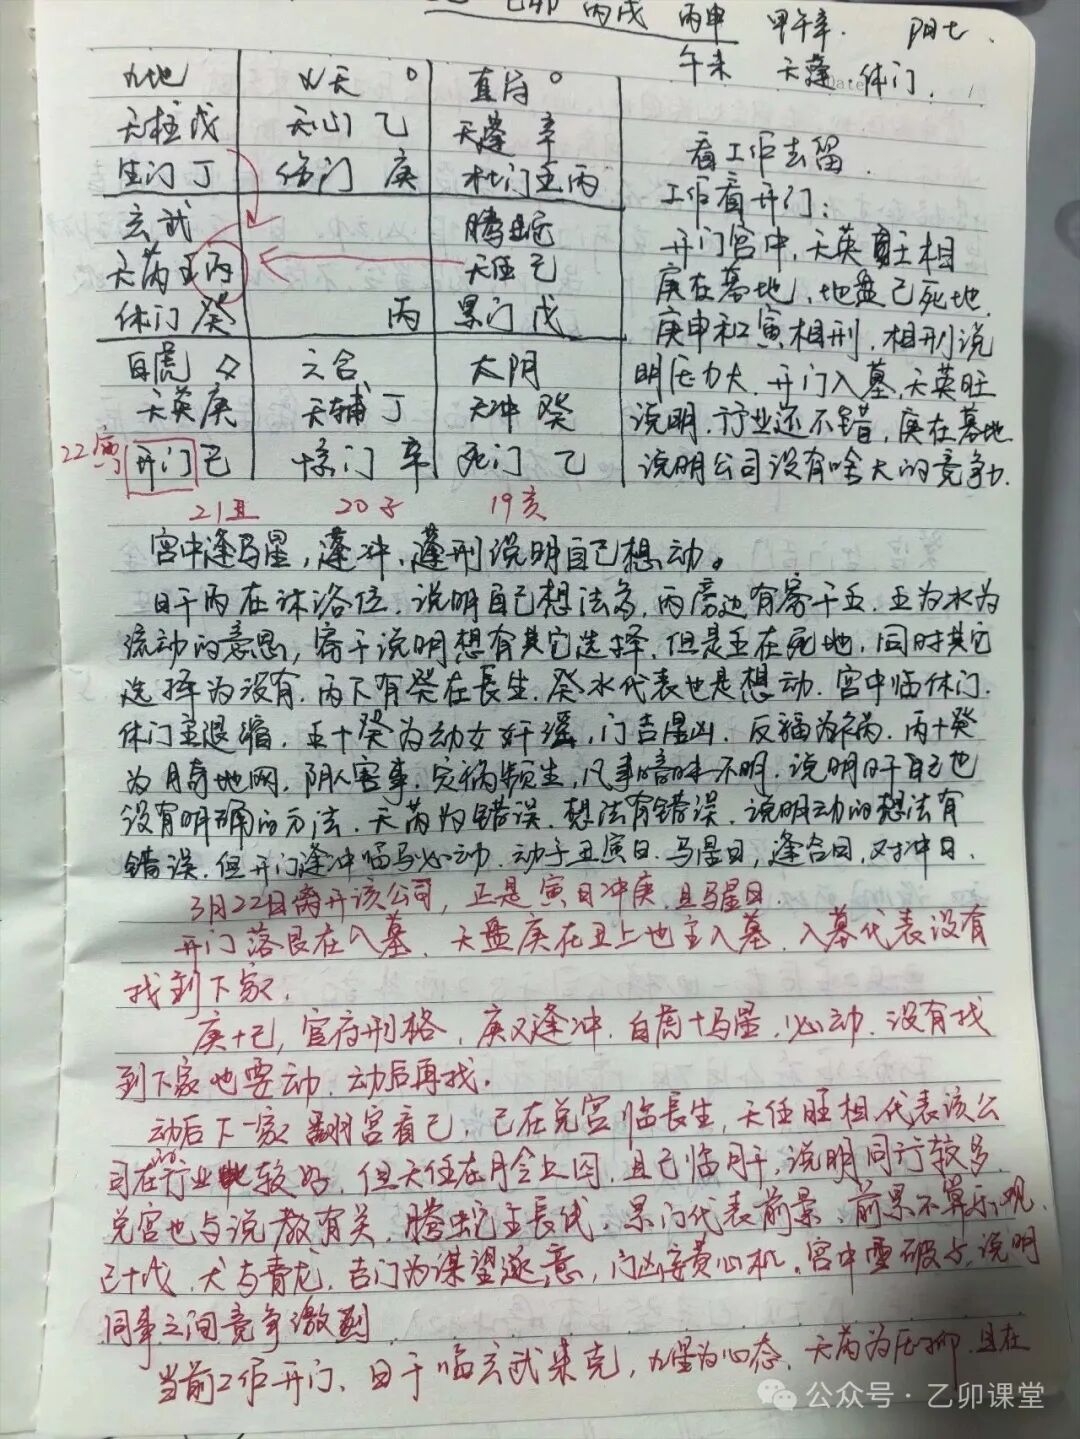 乙卯 丙戌 丙申 甲午辛. 阳七.
午未 天蓬 休门.
九地 九天 直符
天柱戊 天心 乙 天蓬 辛
生门 丁 伤门 庚 杜门 壬丙
玄武 腾蛇
天芮壬丙 天任己
休门 癸 丙 景门 戊
白虎 六合 太阴
天英庚 天辅丁 天冲 癸
22寅 开门 己 惊门 辛 死门 乙
21丑 20子 19亥
看工作去留.
工作看开门:
开门宫中,天英旺相
庚在墓地,地盘己死地.
庚申和寅相刑,相刑说
明压力大.开门入墓,天英旺
说明.行业还不错,庚在墓地
说明公司没有啥大的竞争力.
宫中逢马星,逢冲,逢刑说明自己想动。
日干丙在沐浴位.说明自己想法多,丙旁边有寄干壬.壬为水为
流动的意思,寄干说明想有其它选择.但是壬在死地,同时其它
选择为没有.丙下有癸在長生.癸水代表也是想动.宫中临休门.
休门主退缩.壬+癸为幼女奸谣,门吉星凶.反福为祸.丙+癸
为月奇地网,阴人害事.灾祸频生,凡事暗昧不明.说明日干自己也
没有明确的方法.天芮为错误.想法有错误.说明动的想法有
错误.但开门逢冲临马必动.动于丑寅日.马星日,逢合日,对冲日.
3月22日离开该公司,正是寅日冲庚,且马星日.
开门落艮在入墓.天盘庚在丑上也主入墓.入墓代表没有
找到下家.
庚+己,官府刑格,庚又逢冲.白虎+马星,必动.没有找
到下家也要动.动后再找.
动后下一家 翻宫看己,己在兑宫临長生,天任旺相代表该公
司在行业较好.但天任在月令上囚.且己临月干,说明同行较多.
兑宫也与说教有关.腾蛇主長线,景门代表前景,前景不算乐观.
己+戊,犬与青龙,吉门为谋望遂意,门凶妄费心机.宫中逢破与,说明
同事之间竞争激烈.
当前工作开门、日干临玄武来克,九星为心态,天芮为压抑.且在
公众号·乙卯课堂